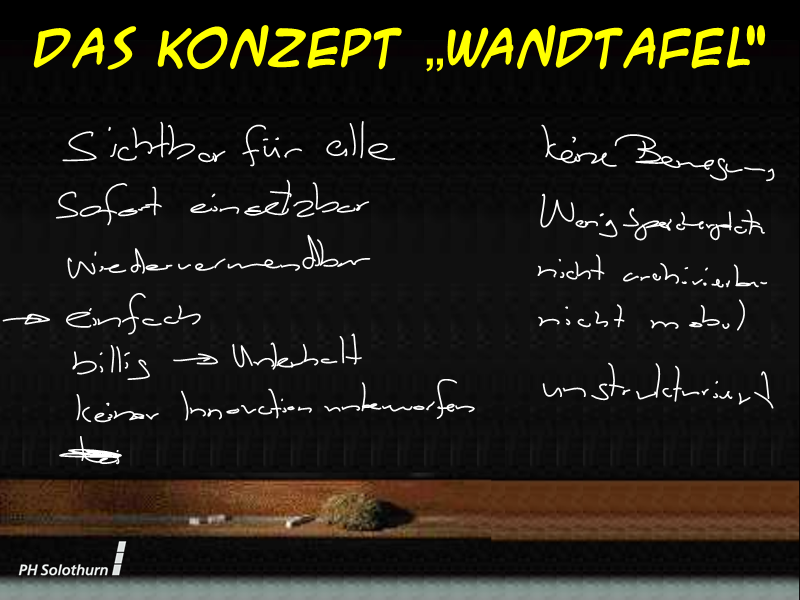 DAS KONZEPT „WANDTAFEL"
Sichtbar für alle
Sofort einsetzbar
wiederverwendbar
→ einfach
billig → Unterhalt
keiner Innovation unterworfen
keine Bewegung
Wenig
nicht archivierbar
nicht mobil
unstrukturiert
PH Solothurn